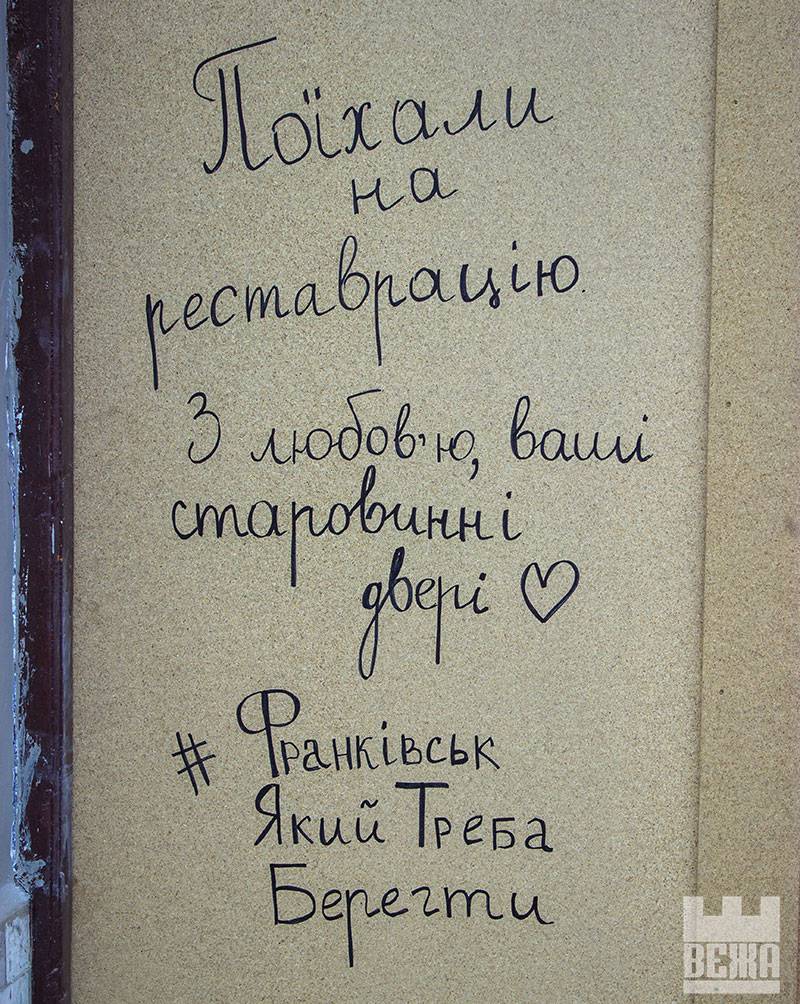 Поїхали
на
реставрацію.
З любов'ю, ваші
старовинні
двері ♡
# Франківськ
Який Треба
Берегти
ВЕЖА